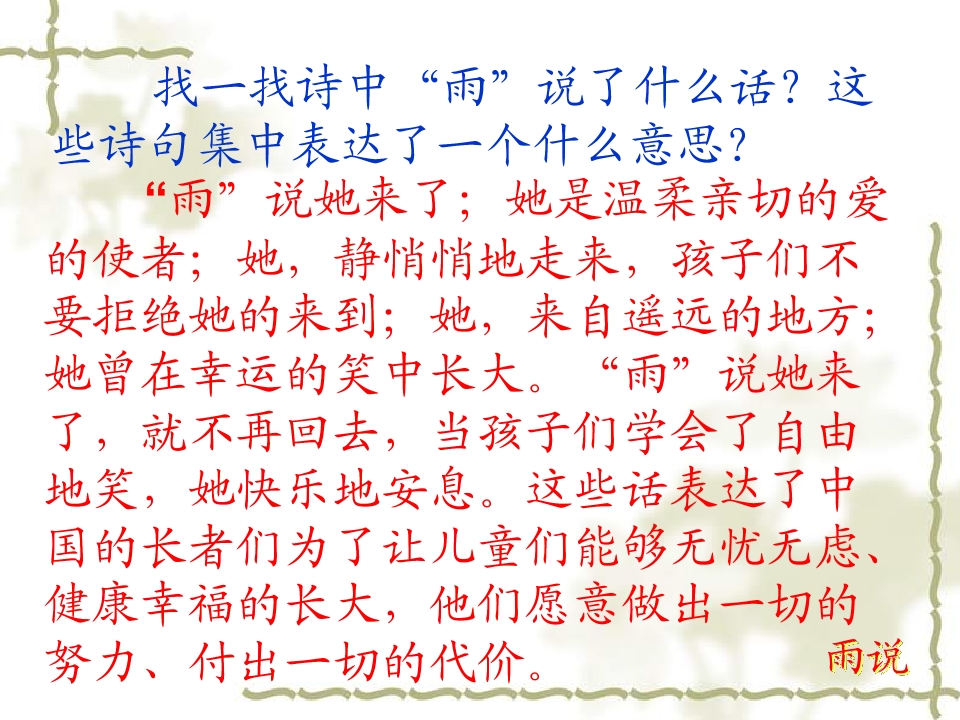 找一找诗中“雨”说了什么话？这
些诗句集中表达了一个什么意思？
“雨”说她来了；她是温柔亲切的爱
的使者；她，静悄悄地走来，孩子们不
要拒绝她的来到；她，来自遥远的地方；
她曾在幸运的笑中长大。“雨”说她来
了，就不再回去，当孩子们学会了自由
地笑，她快乐地安息。这些话表达了中
国的长者们为了让儿童们能够无忧无虑、
健康幸福的长大，他们愿意做出一切的
努力、付出一切的代价。
雨说